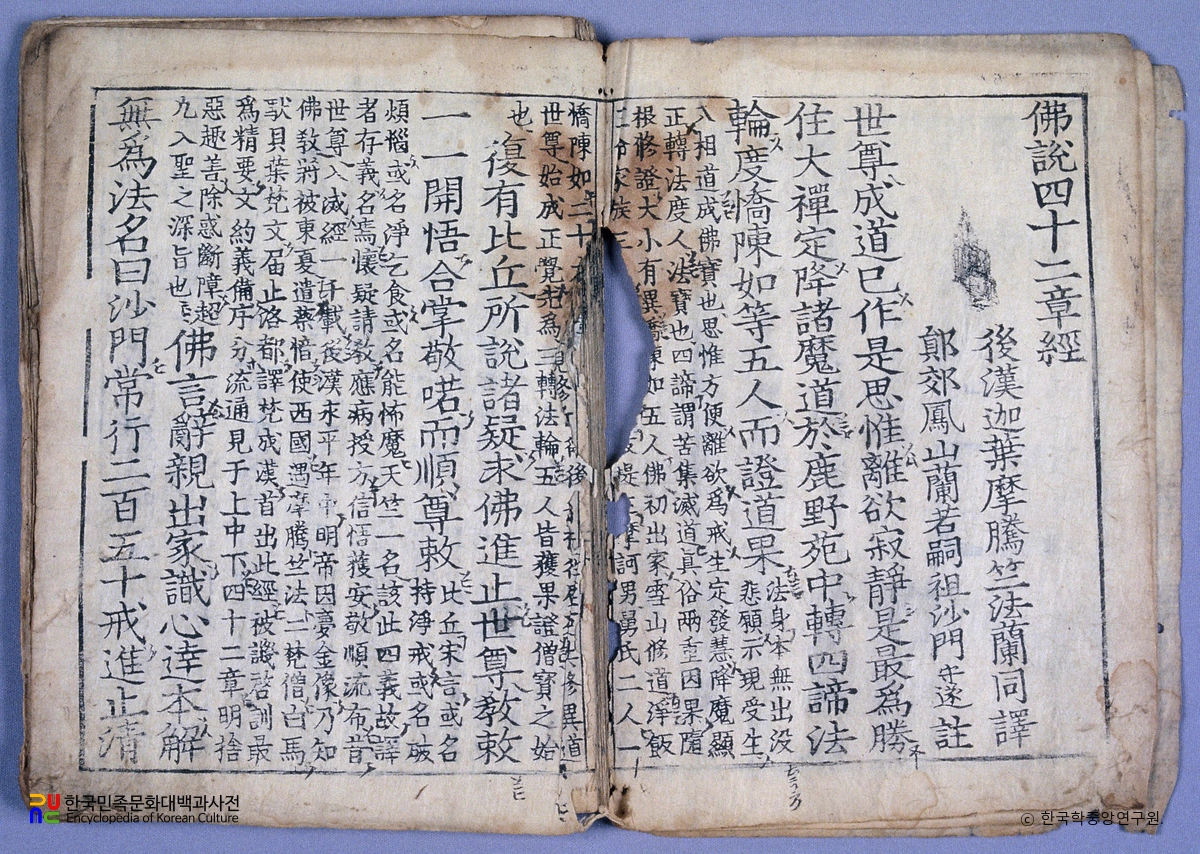 佛說四十二章經
後漢迦葉摩騰竺法蘭同譯
郊鳳山蘭若嗣祖沙門守遂註
世尊成道已作是思惟離欲寂靜是最爲勝
住大禪定降諸魔道於鹿野苑中轉四諦法
輪度憍陳如等五人而證道果
法身本無出没
悲願示現受生
八相道成佛寶也思惟方便離欲爲戒生定發慧降魔顯
正轉法度人法寶也四諦謂苦集滅道眞俗兩重因果隨
根修證大小有異憍陳如五人佛初出家雪山修道淨飯
家族三 提 摩訶男舅氏二人一
憍陳如二十 後 修異道
世尊始成正覺 三轉法輪五人皆獲果證僧寶之始
也
復有比丘所說諸疑求佛進止世尊敎敕
一一開悟合掌敬喏而順尊敕
比丘宋言或名
持淨戒或名破
煩惱或名淨乞食或名能怖魔天竺一名該此四義故譯
者存義名焉懷疑請敎應病授方信悟獲安敬順流布昔
世尊入滅經一千載後漢永平年中明帝因夢金像乃知
佛敎將被東憂遣蔡愔使西國遇摩騰竺法二梵僧白馬
馱貝葉梵文届止洛都譯梵成漢首出此經被譏啓訓最
爲精要文約義備序分流通見于上中下四十二章明捨
惡趣善除惑斷障超
九入聖之深旨也
佛言辭親出家識心達本解
無爲法名曰沙門常行二百五十戒進止清
한국민족문화대백과사전
Encyclopedia of Korean Culture
© 한국학중앙연구원